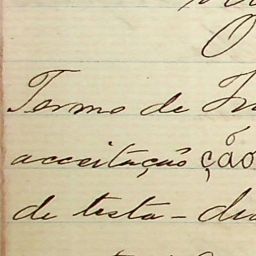 O
Termo de
acceitação ção
de testa-